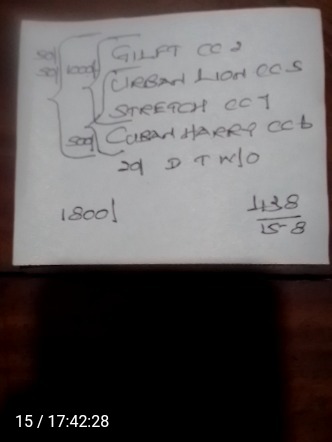 50/
50/ 1000/ GILFT CC 2
URBAN LION CC 5
STRETCH CC 7
500/ CUBAN HARRY CC 6
20/ D T W/O
1800/
1138
15-8
15 / 17:42:28